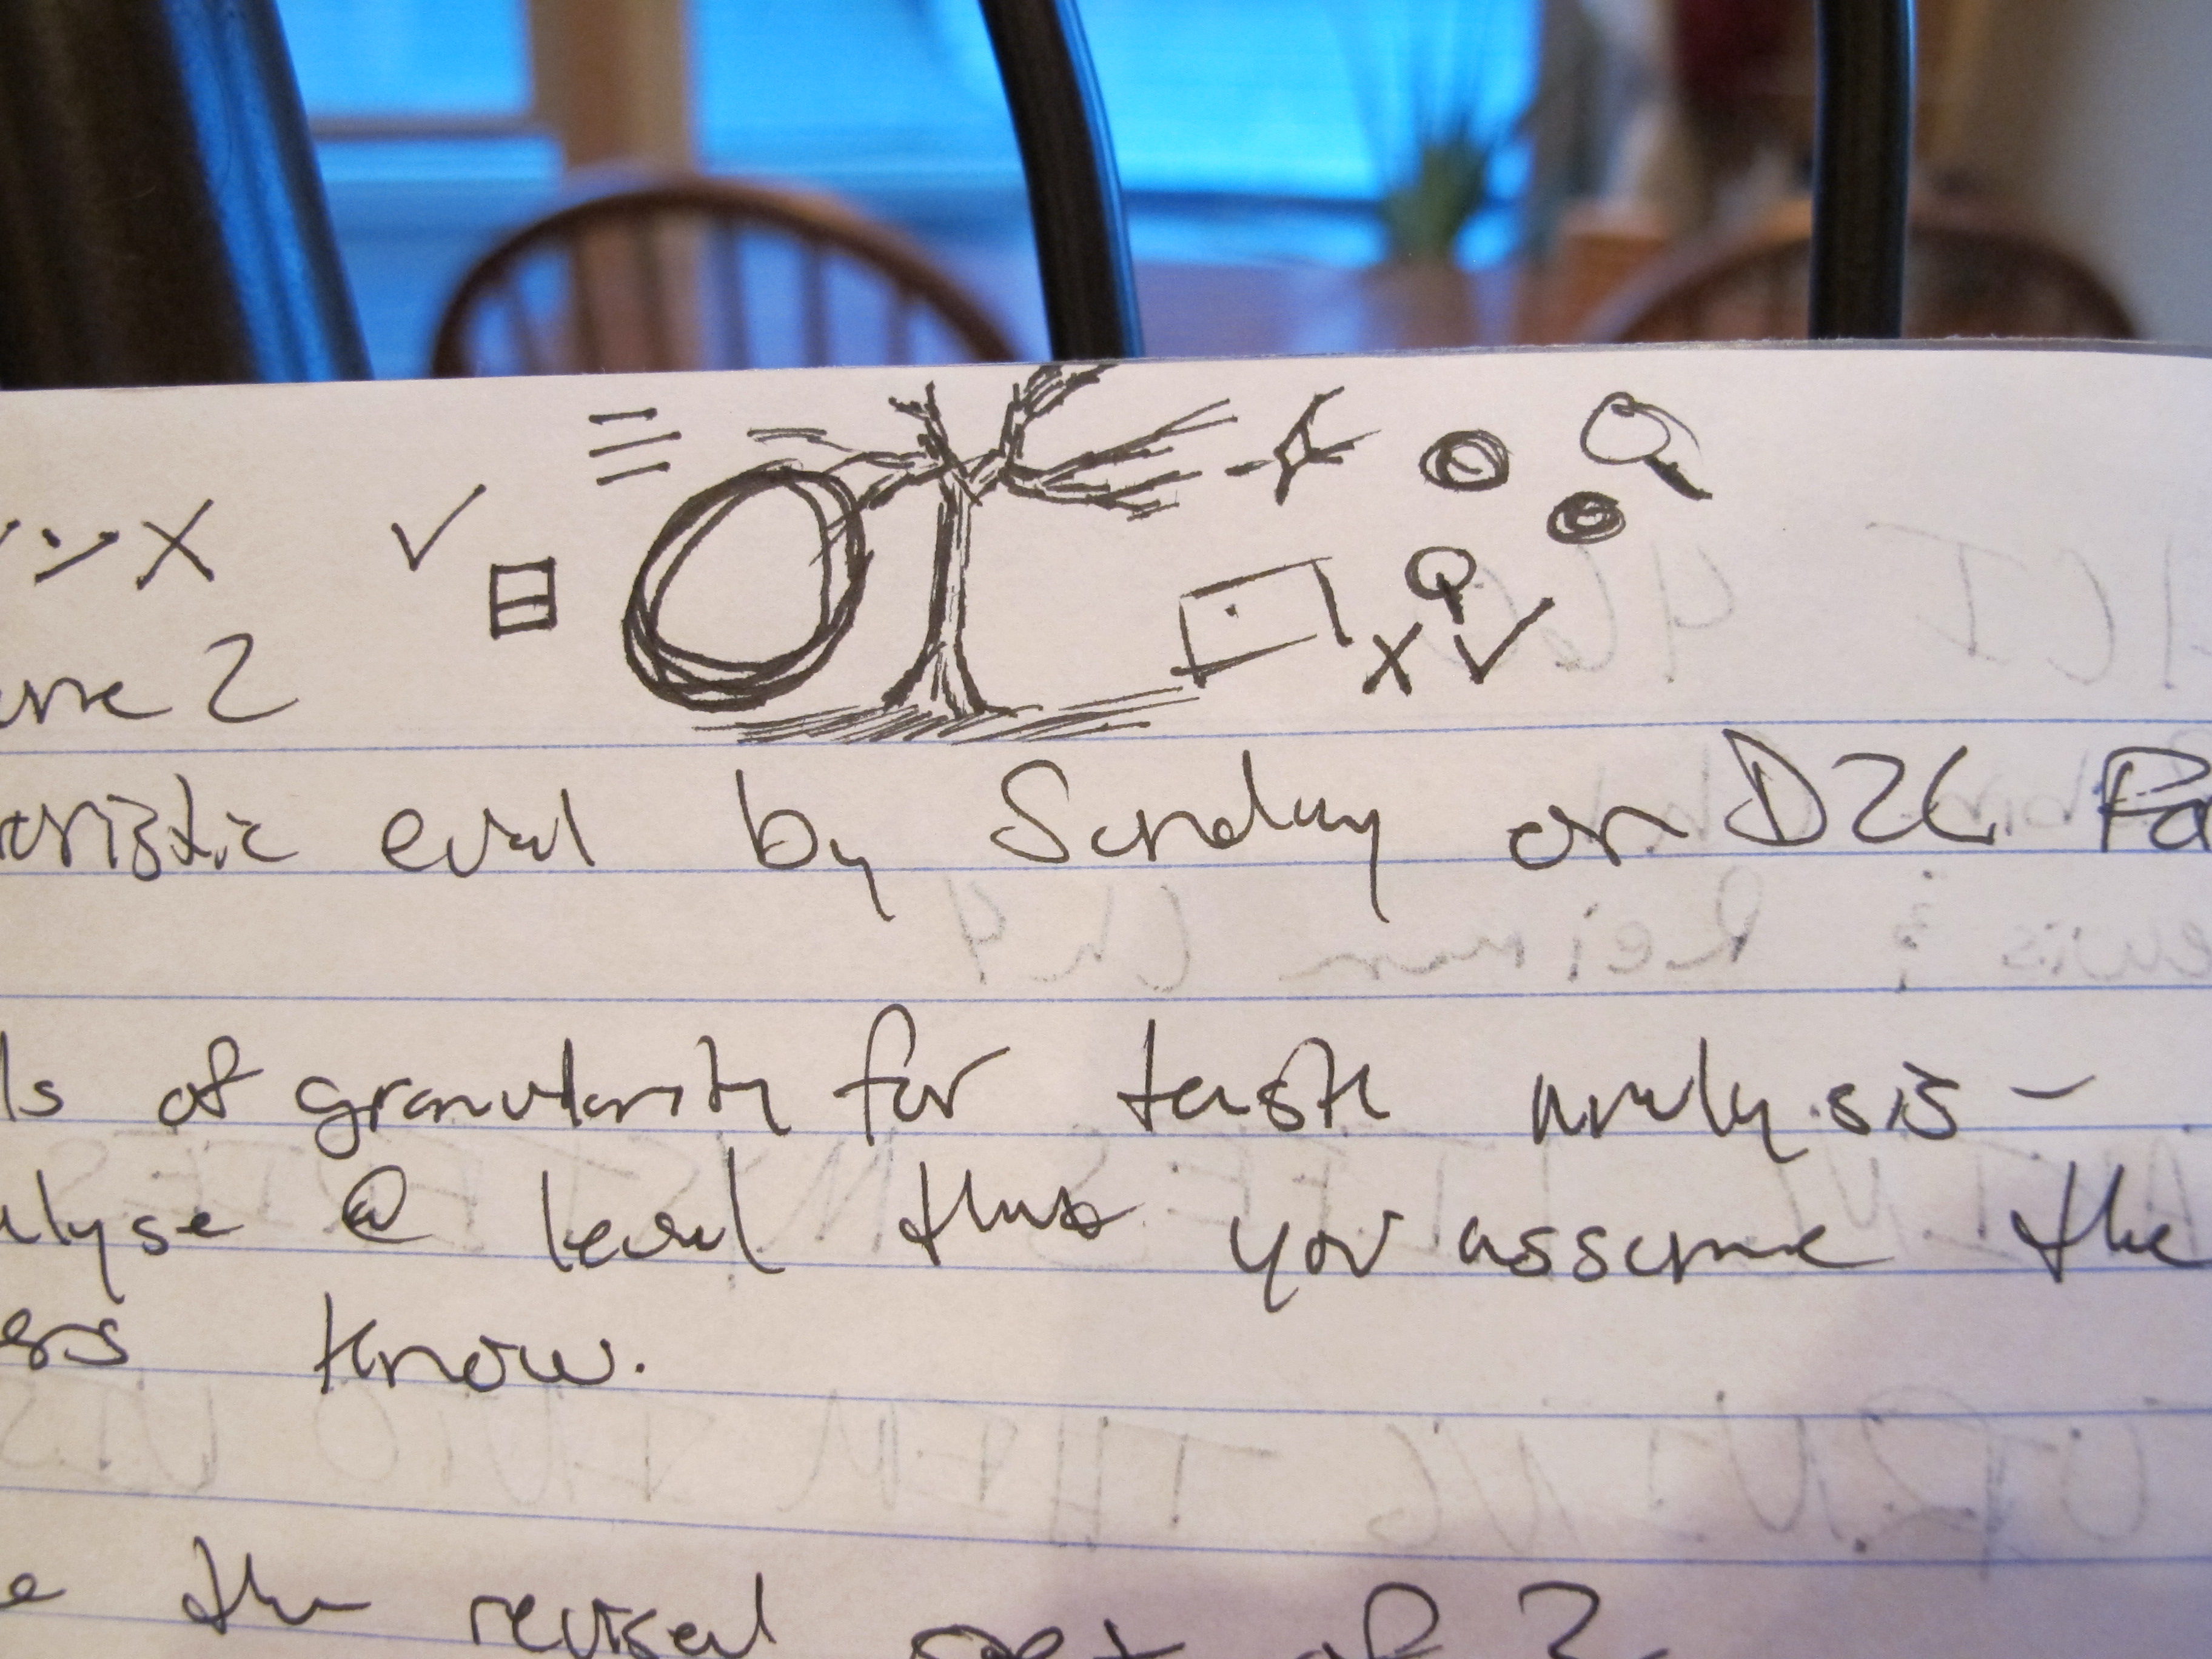 eristic eval by Sunday on D2L Pa
ls of granularity for task analysis -
alyse @ level that you assume the
ers know.
e the revised set of 2